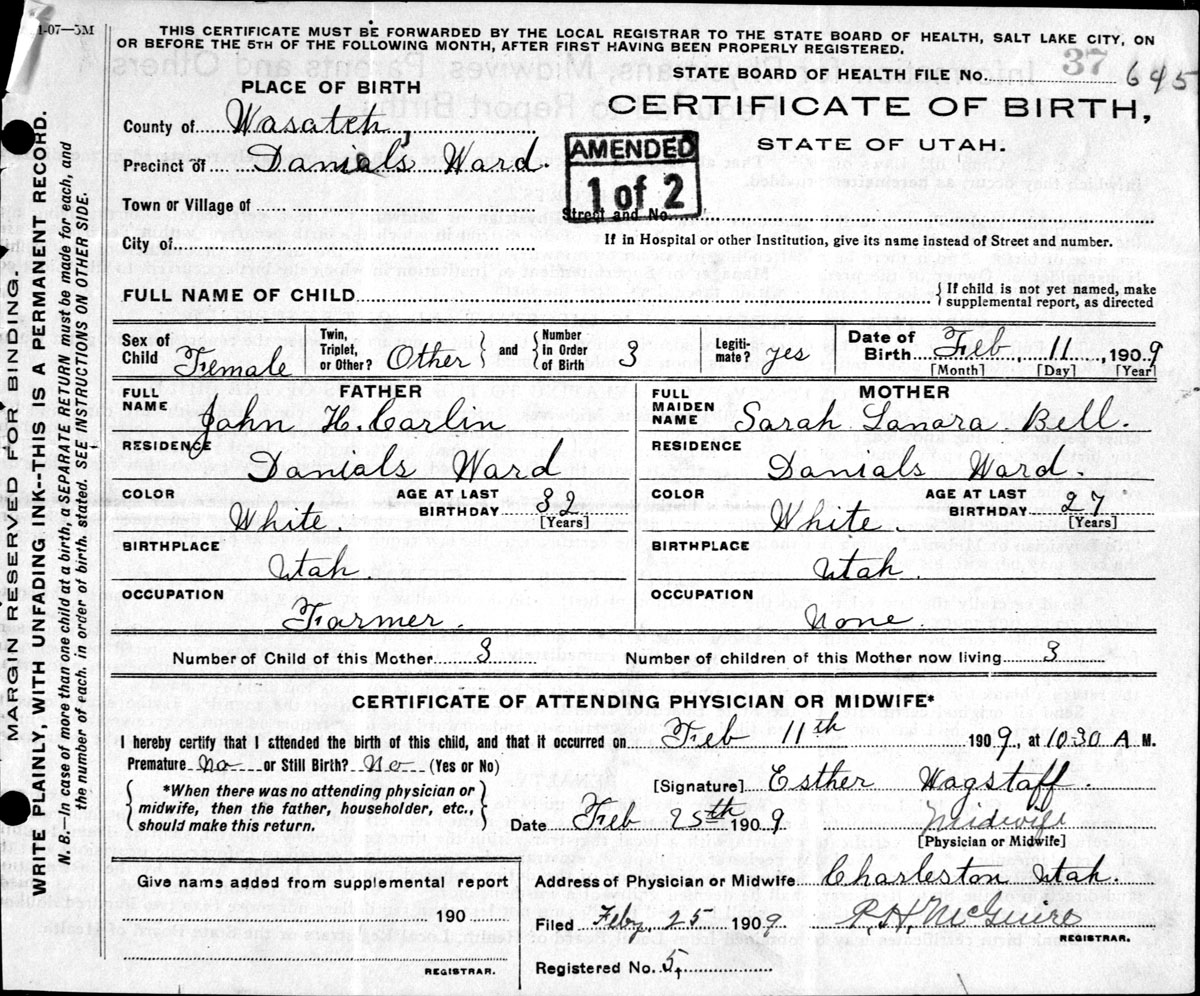 1-07—5M
THIS CERTIFICATE MUST BE FORWARDED BY THE LOCAL REGISTRAR TO THE STATE BOARD OF HEALTH, SALT LAKE CITY, ON
OR BEFORE THE 5TH OF THE FOLLOWING MONTH, AFTER FIRST HAVING BEEN PROPERLY REGISTERED.
STATE BOARD OF HEALTH FILE No. 37 645
PLACE OF BIRTH
CERTIFICATE OF BIRTH,
STATE OF UTAH.
County of Wasatch,
AMENDED
1 of 2
Precinct of Daniels Ward
Town or Village of
Street and No.
City of
If in Hospital or other Institution, give its name instead of Street and number.
FULL NAME OF CHILD
{ If child is not yet named, make
supplemental report, as directed
Sex of Child Female
Twin, Triplet, or Other? Other } and { Number In Order of Birth 3
Legiti- mate? yes
Date of Birth Feb 11, 1909
[Month] [Day] [Year]
FATHER
FULL NAME John H. Carlin
RESIDENCE Danials Ward
COLOR White.
AGE AT LAST BIRTHDAY 32
[Years]
BIRTHPLACE Utah.
OCCUPATION Farmer.
MOTHER
FULL MAIDEN NAME Sarah Lanora Bell.
RESIDENCE Danials Ward.
COLOR White.
AGE AT LAST BIRTHDAY 27
[Years]
BIRTHPLACE Utah.
OCCUPATION None.
Number of Child of this Mother 3
Number of children of this Mother now living 3
CERTIFICATE OF ATTENDING PHYSICIAN OR MIDWIFE*
I hereby certify that I attended the birth of this child, and that it occurred on Feb 11th 1909, at 10:30 A. M.
Premature No or Still Birth? No (Yes or No)
{ *When there was no attending physician or
midwife, then the father, householder, etc.,
should make this return. }
[Signature] Esther Wagstaff
Date Feb 25th 1909
Midwife
[Physician or Midwife]
Give name added from supplemental report
190
REGISTRAR.
Address of Physician or Midwife Charleston Utah.
Filed Feby, 25 1909
R. H. McGuire
REGISTRAR.
Registered No. 5,
MARGIN RESERVED FOR BINDING.
WRITE PLAINLY, WITH UNFADING INK--THIS IS A PERMANENT RECORD.
N. B.—In case of more than one child at a birth, a SEPARATE RETURN must be made for each, and
the number of each, in order of birth, stated. SEE INSTRUCTIONS ON OTHER SIDE.